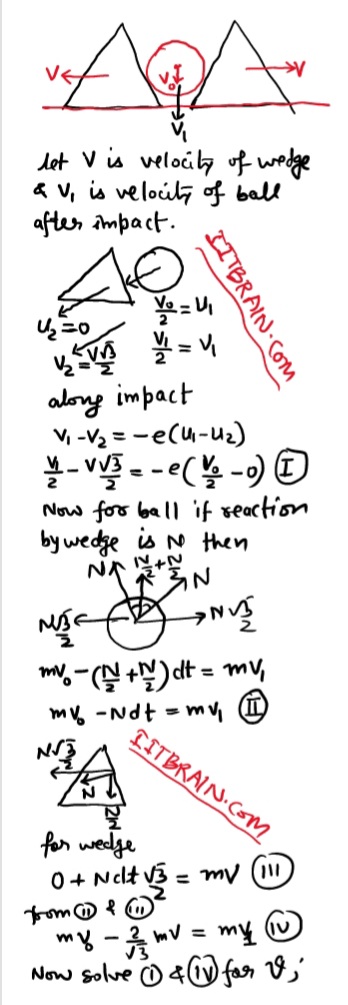 V
V₀
V
V₁
let V is velocity of wedge
& V₁ is velocity of ball
after impact.
IITBRAIN.COM
U₂=0
V₀/2 = U₁
V₂ = V√3/2
V₁/2 = V₁
along impact
V₁-V₂ = -e(U₁-U₂)
V₁/2 - V√3/2 = -e(V₀/2 - 0) Ⓘ
Now for ball if reaction
by wedge is N then
N N/2+N/2 N
N√3/2 N√3/2
mV₀-(N/2+N/2)dt = mV₁
mV₀ - Ndt = mV₁ II
N√3/2
N
N/2
IITBRAIN.COM
for wedge
0 + Ndt √3/2 = mV III
from II & III
mV₀ - 2/√3 mV = mV₁ IV
Now solve I & IV for V;